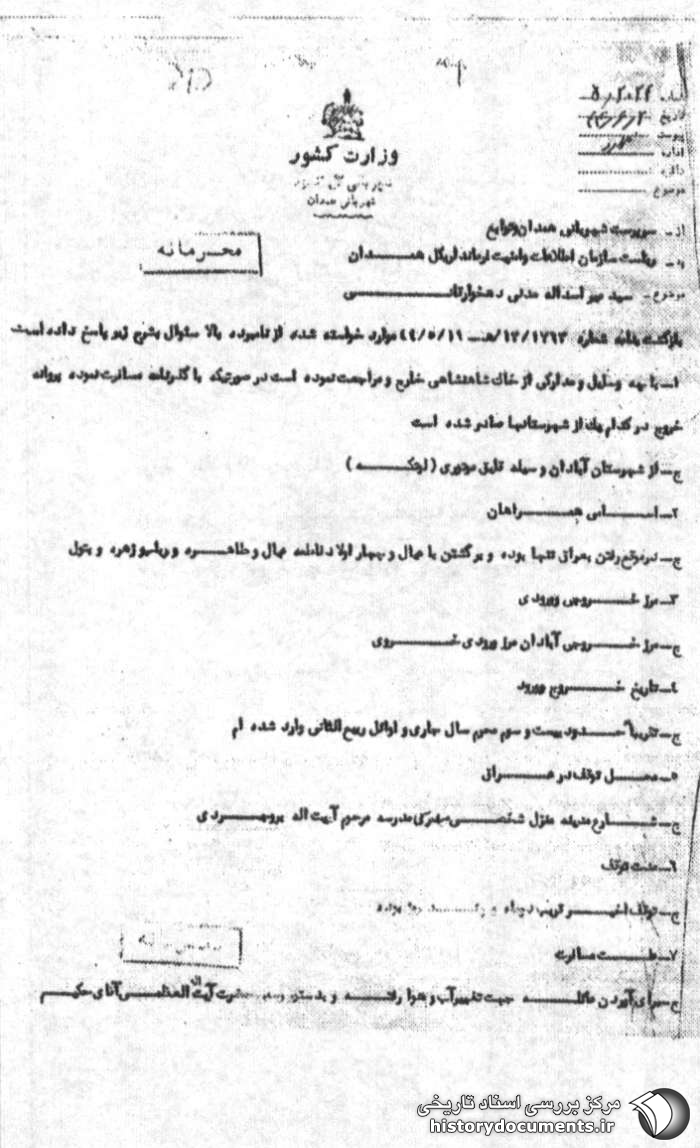 شماره
تاریخ
پیوست
اداره
دائره
موضوع
وزارت کشور
شهربانی کل کشور
شهربانی همدان
محرمانه
از ـ سرپرست شهربانی همدان و توابع
به ـ ریاست سازمان اطلاعات و امنیت فرمانداریکل همدان
موضوع ـ سید میر اسداله مدنی دهخوارقانی
بازگشت بنامه شماره ۱۲/۱۷۶۳/هـ ـ ۴۴/۵/۱۹ موارد خواسته شده از نامبرده بالا سئوال بشرح زیر پاسخ داده است
۱ـ با چه وسایل و مدارکی از خاک شاهنشاهی خارج و مراجعت نموده است در صورتیکه با گذرنامه مسافرت نموده پروانه
خروج در کدام یک از شهرستانها صادر شده است
ج ـ از شهرستان آبادان وسیله قایق موتوری ( لنچکه )
۲ـ اسامی همراهان
ج ـ در موقع رفتن بعراق تنها بوده و برگشتن با عیال و چهار اولاد فاطمه عیال و طاهره و زهره و بتول
۳ـ مرز خروجی و ورودی
ج ـ مرز خروجی آبادان مرز ورودی خسروی
٤ـ تاریخ خروج و ورود
ج ـ تقریبا حدود بیست و سوم محرم سال جاری و اوائل ربیع الثانی وارد شده ام
۵ـ محل توقف در عراق
ج ـ شارع مدینه منزل شخصی مدرسه مرحوم آیت اله بروجردی
٦ـ مدت توقف
ج ـ توقف اخیر قریب دو ماه و روز بوده
۷ـ علت مسافرت
ج ـ برای آوردن عائله جهت تغییر آب و هوا رفته و بدستور حضرت آیت اله العظمی آقای حکیم
مرکز بررسی اسناد تاریخی
historydocuments.ir